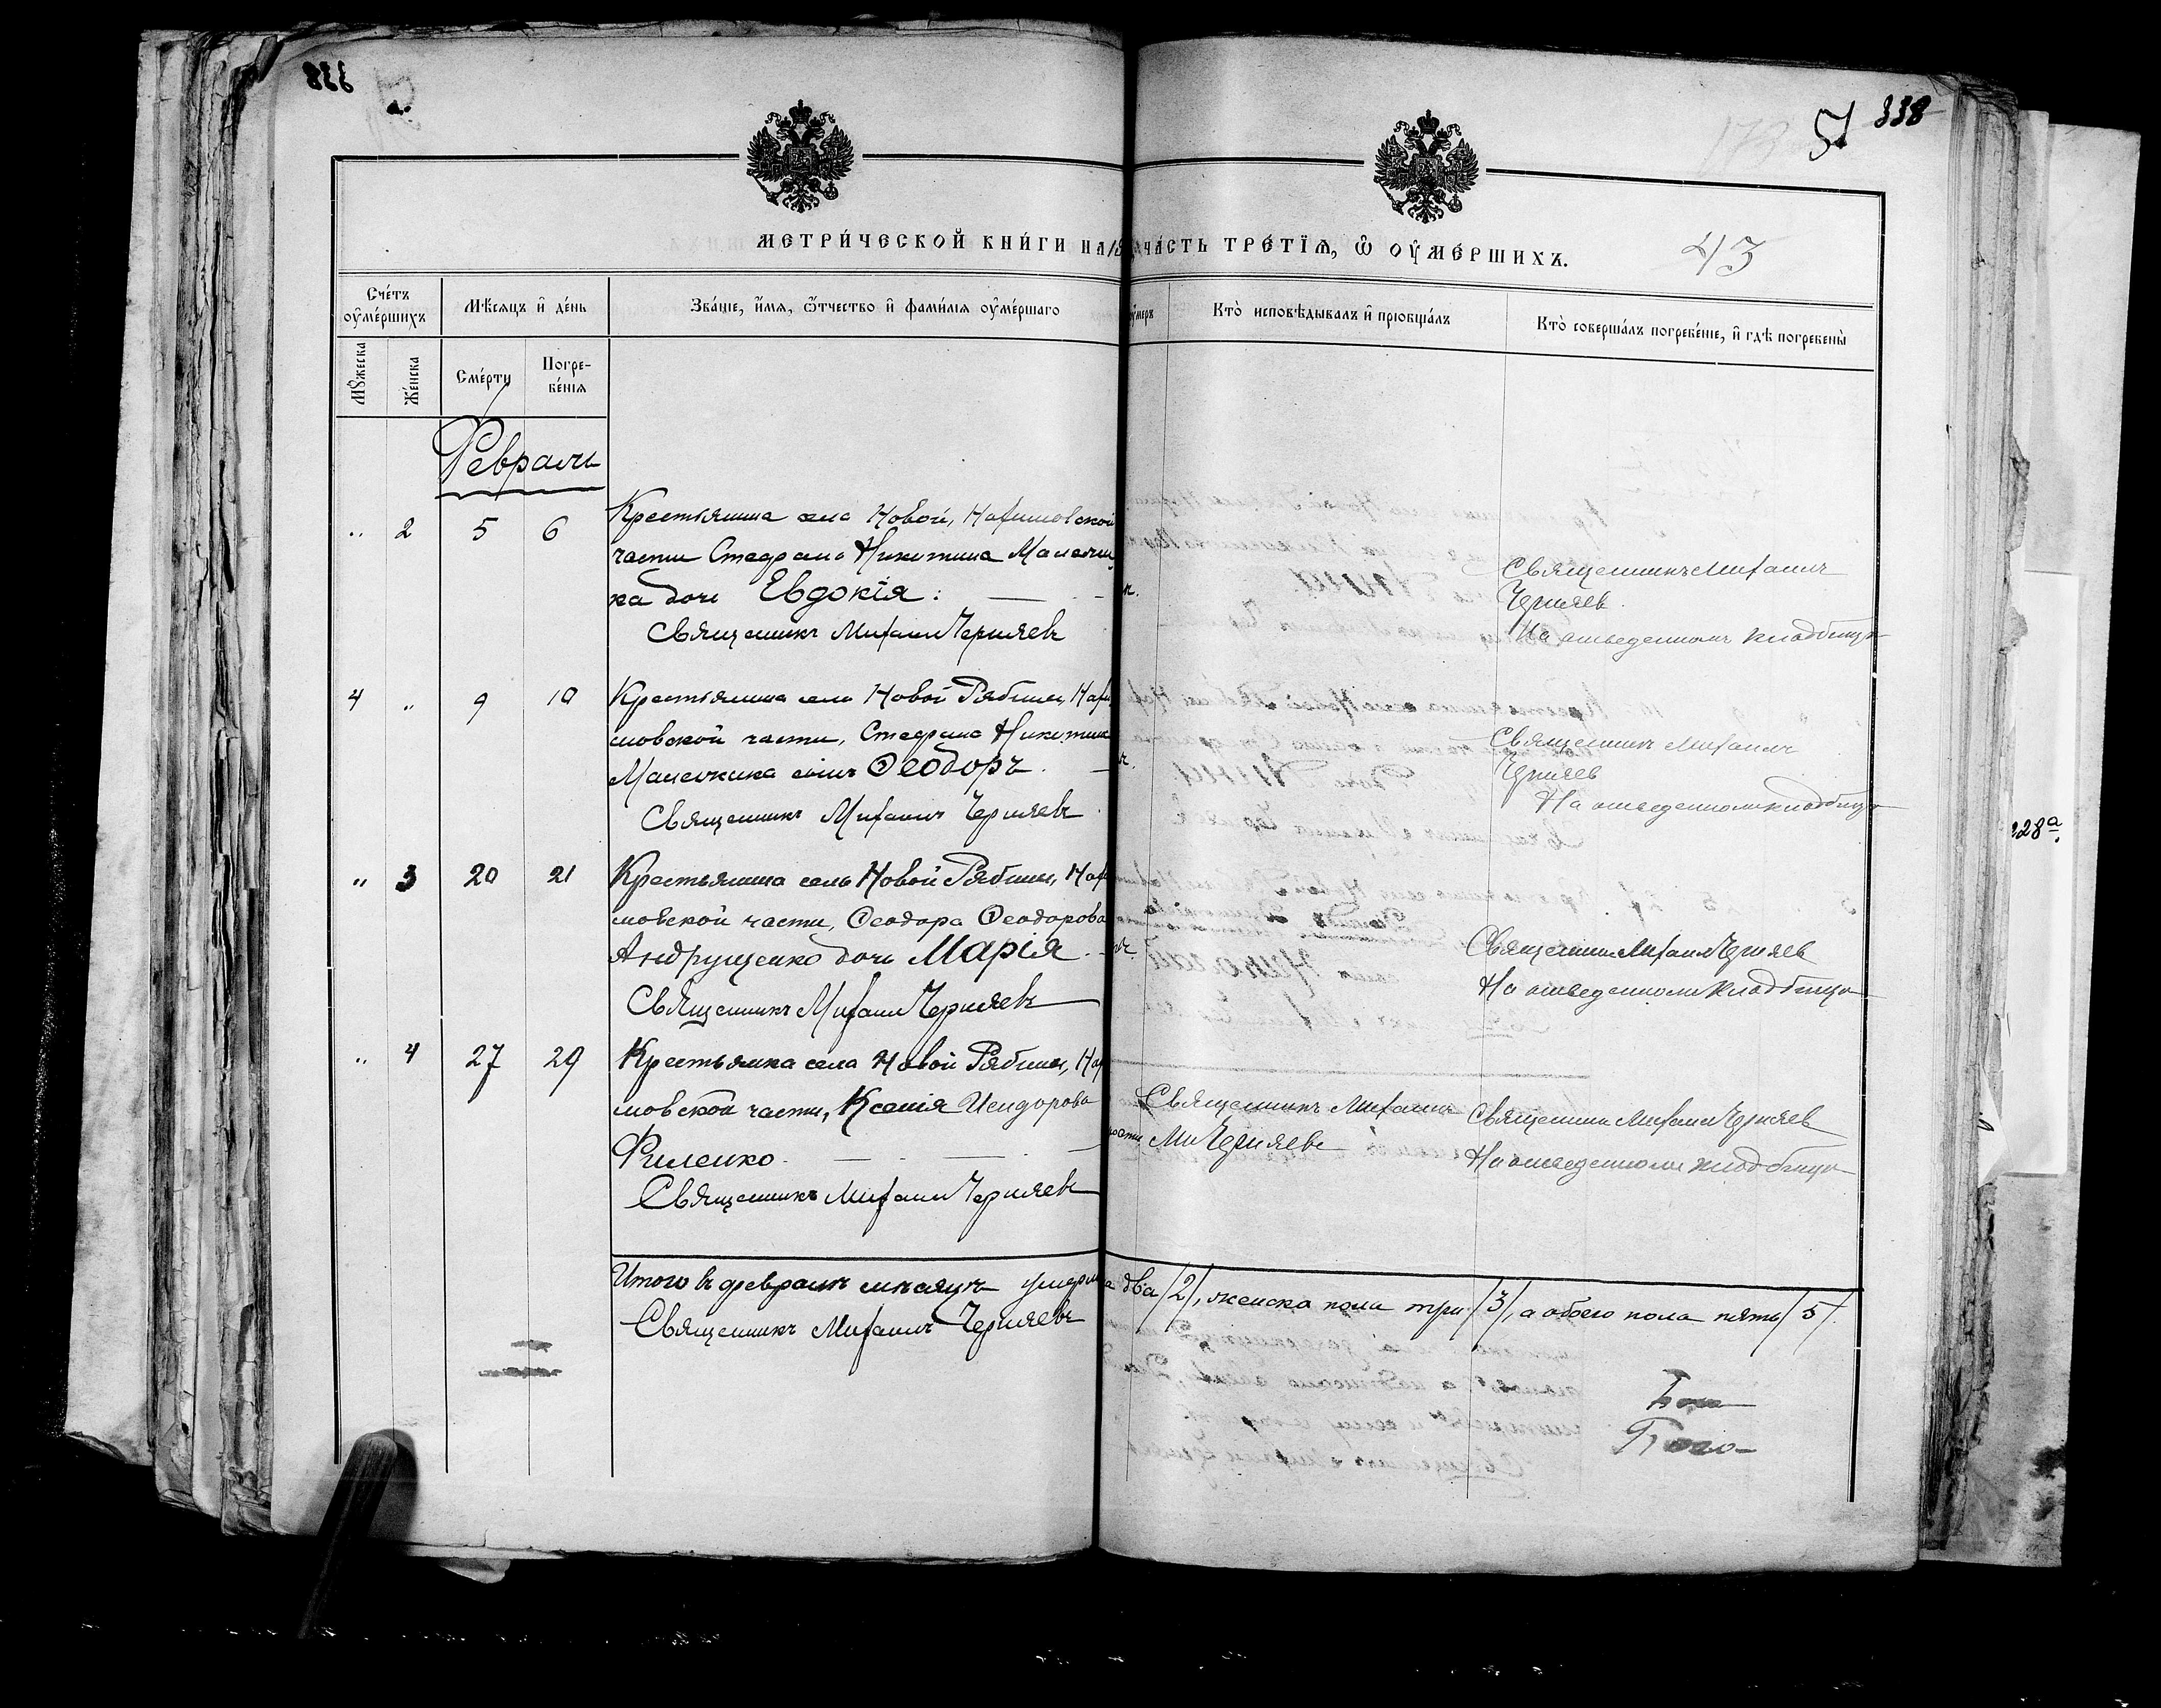 338
51
173
МЕТРИ́ЧЕСКОЙ КНИ́ГИ НА
ЧА́СТЬ ТРЕ́ТІѦ, Ѽ ОУ҆МЕ́РШИХЪ.
43
Сче́тъ оу҆ме́ршихъ
Мѣ́сѧцъ и҆ де́нь
Зва́ніе, и҆́мѧ, ѻ҆́тчество и҆ фами́лїѧ оу҆ме́ршаго
Кто̀ исповѣ́дывалъ и҆ прїобща́лъ
Кто̀ соверша́лъ погребе́нїе, и҆ гдѣ̀ погребены̀
Мꙋ́жеска
Же́нска
Сме́рти
Погребе́нїѧ
Февраль
2 5 6
Крестьянина села Новой,
части Никитина
ка дочь Евдокія.
Священникъ Михаилъ Черняевъ
Священникъ Михаилъ
Черняев
На отведенномъ кладбищѣ
4 „ 9 10
Крестьянина села Новой Рябины,
мовской части, Никитина
сынъ Ѳеодоръ.
Священникъ Михаилъ Черняевъ
Священникъ Михаилъ
Черняев
На отведенномъ кладбищѣ
„ 3 20 21
Крестьянина села Новой Рябины,
мовской части, Ѳеодора Ѳеодорова
Андрущенко дочь Марія.
Священникъ Михаилъ Черняевъ
Священникъ Михаилъ Черняев
На отведенномъ кладбищѣ
„ 4 27 29
Крестьянка села Новой Рябины,
мовской части, Ксенія Исидорова
Филенко
Священникъ Михаилъ Черняевъ
Священникъ Михаилъ
Черняевъ
Священникъ Михаилъ Черняев
На отведенномъ кладбищѣ
Итого въ февралѣ мѣсяцѣ умерш
два /2/, женска пола три /3/, а обоего пола пять /5/.
Священникъ Михаилъ Черняевъ
228а